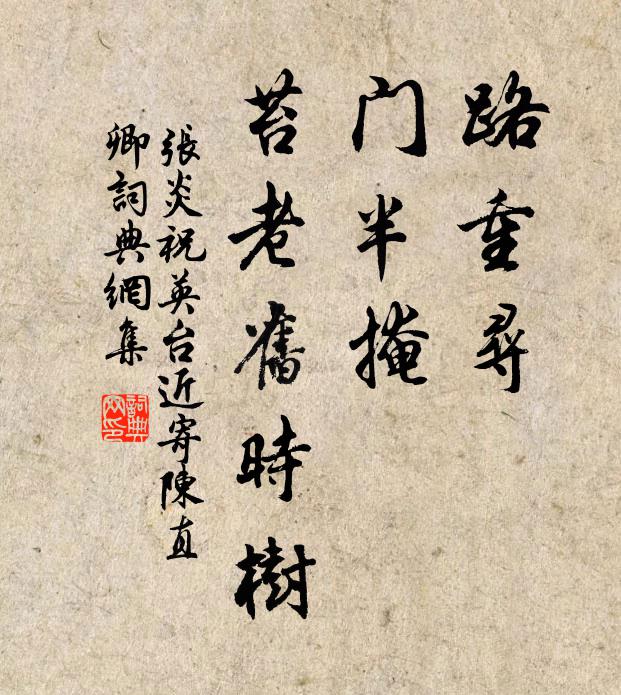 路重尋
门半掩
苔老舊時樹
張炎祝英台近寄陳直
卿詞典網集
詞典网印